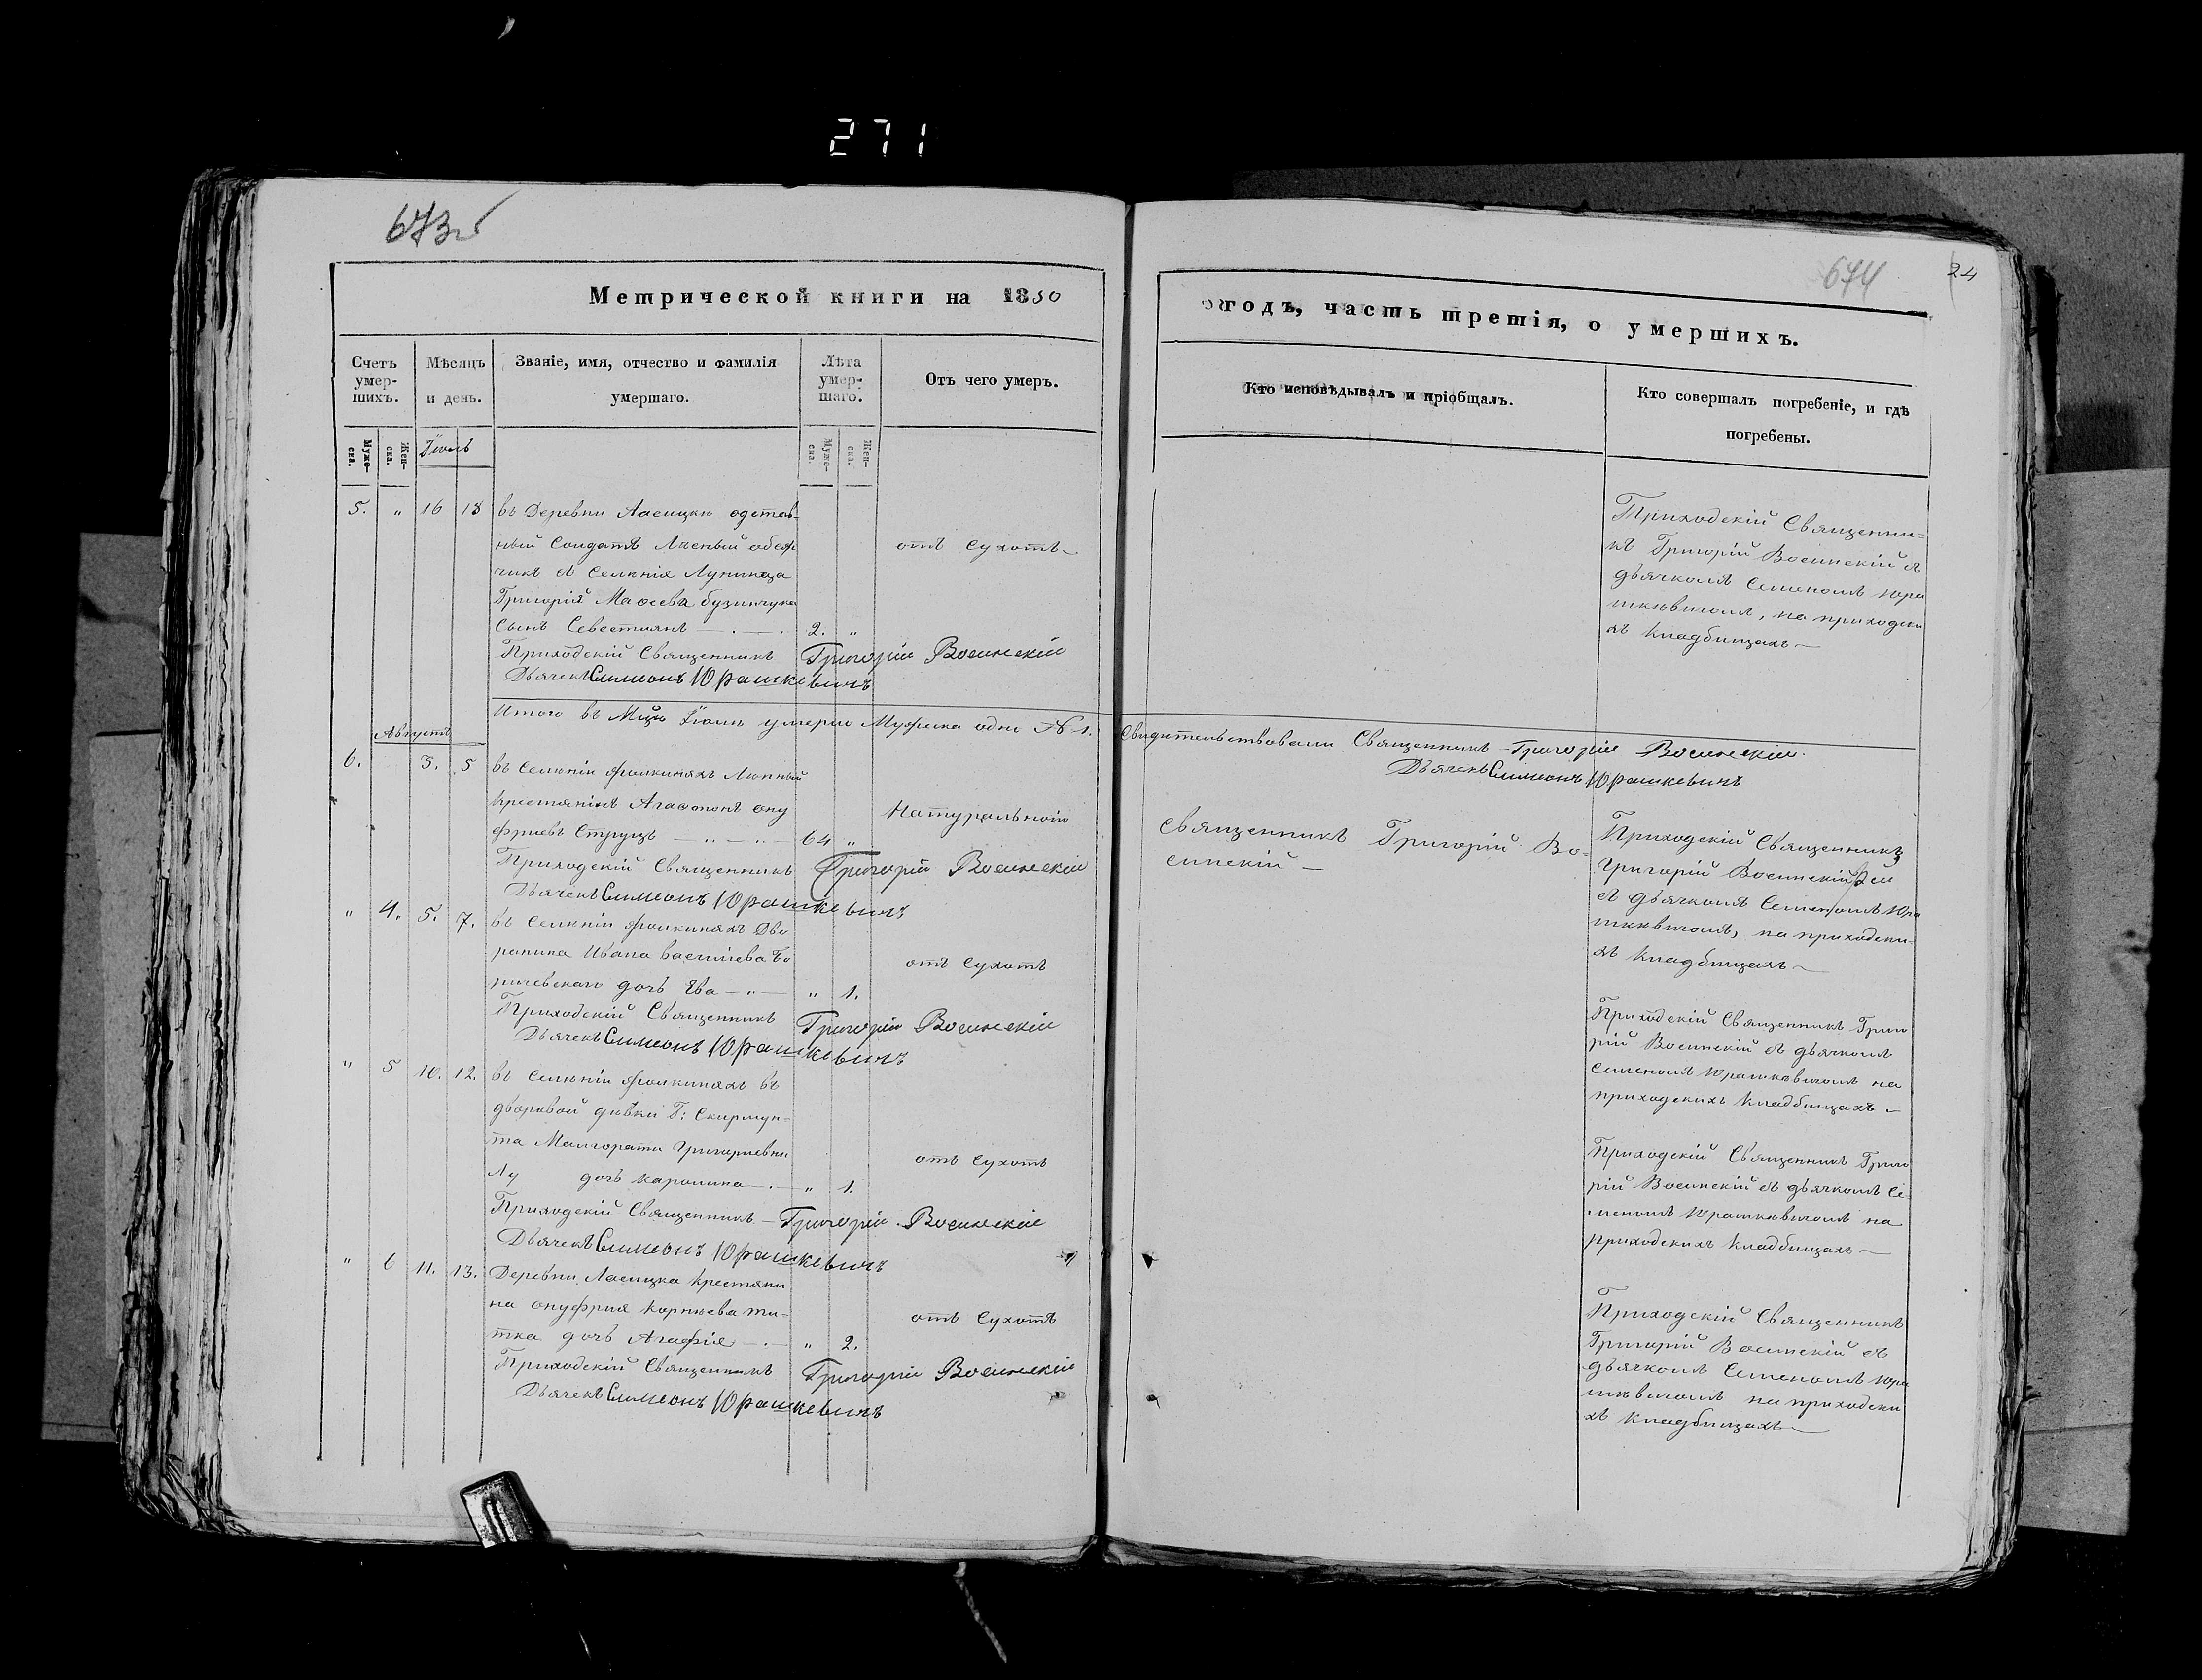 271
673
674
24
Метрической книги на 1850
годъ, часть третія, о умершихъ.
Счетъ умер-шихъ.
Мѣсяцъ и день.
Званіе, имя, отчество и фамилія умершаго.
Лѣта умер-шаго.
Отъ чего умеръ.
Кто исповѣдывалъ и пріобщалъ.
Кто совершалъ погребеніе, и гдѣ погребены.
Муже-ска.
Жен-ска.
Іюль
Муже-ска.
Жен-ска.
5. " 16 18 въ Деревни Ласицкѣ одстав-
ный Солдатъ Лѣсный обез
чикъ съ Селѣнія Лунинца
Григорій
сынъ Севестиянъ 2. "
отъ Сухотъ
Приходскій Священникъ Григорій Восинскій
Дьячекъ Симеонъ Юрашкевичъ
Приходскій Священни-
къ Григорій Восинскій съ
дьячкомъ Семеномъ Юра
шкѣвичомъ, на приходски
хъ Кладбищахъ
Итого въ Мцѣ Іюлѣ умерло Мужеска одно № 1.
Свидѣтельствовали Священникъ Григорій Восинскій
Дьячекъ Симеонъ Юрашкевичъ
Августъ
6. 3. 5 въ Селѣніи
крестянінъ Агафонъ ону
фриевъ Струцъ 64 "
Натуральною
Приходскій Священникъ Григорій Восинскій
Дьячекъ Симеонъ Юрашкевичъ
Священникъ Григорій Во-
синскій
Приходскій Священникъ
Григорій Восинскій
съ дьячкомъ Семеномъ Юра
шкѣвичомъ, на приходски-
хъ Кладбищахъ
" 4. 5. 7. въ Селѣніи Дво
ранина Ивана василіева
дочъ Ева " 1.
отъ Сухотъ
Приходскій Священникъ Григорій Восинскій
Дьячекъ Симеонъ Юрашкевичъ
Приходскій Священникъ Григо
рій Восинскій съ дьячкомъ
Семеномъ Юрашкевичомъ на
приходскихъ Кладбищахъ
" 5 10. 12. въ Селѣніи въ
дворовой дѣвки Г: Скирмун-
та Малгораты Григориевны
Лу дочъ каролина " 1.
отъ Сухотъ
Приходскій Священникъ Григорій Восинскій
Дьячекъ Симеонъ Юрашкевичъ
Приходскій Священникъ Григо
рій Восинскій съ дьячкомъ Се-
меномъ Юрашкѣвичомъ на
приходскихъ Кладбищахъ
" 6 11. 13. Деревни Ласицка крестяни
на онуфрия корнѣева ти-
тка дочъ Агафія " 2.
отъ Сухотъ
Приходскій Священникъ Григорій Восинскій
Дьячекъ Симеонъ Юрашкевичъ
Приходскій Священникъ
Григорій Восинскій съ
дьячкомъ Семеномъ Юра
шкѣвичомъ на приходски
хъ Кладбищахъ